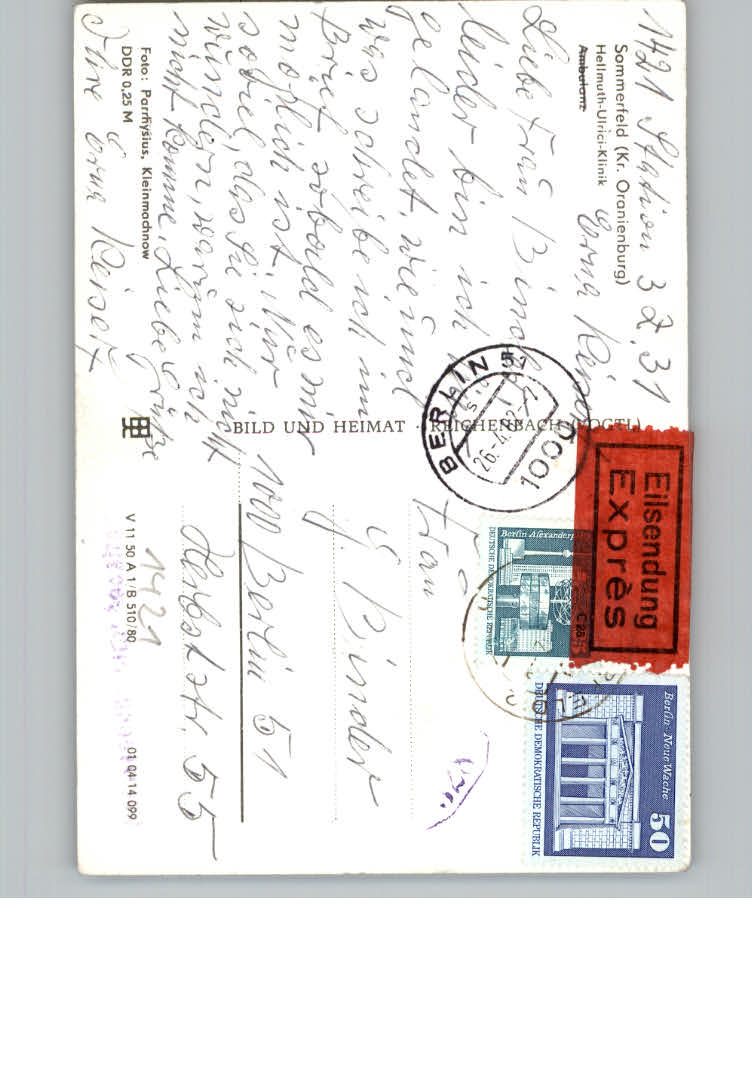 1421 Station 3 Z. 31
Sommerfeld (Kr. Oranienburg)
Hellmuth-Ulrici-Klinik
Ambulanz
Erna
Liebe Frau
leider bin ich
gelandet, wie und
was schreibe ich im
Brief sobald es mir
möglich ist. Nur
soviel, das Sie sich nicht
wundern, warum ich
nicht komme. Liebe Grüße
Foto: Parmysius, Kleinmachnow
DDR 0,25 M
Ihre Erna
BILD UND HEIMAT · REICHENBACH (VOGTL)
BERLIN 51
26.-4.82
1000
Eilsendung
Exprès
Berlin Alexanderplatz
DEUTSCHE DEMOKRATISCHE REPUBLIK
Berlin · Neue Wache
50
DEUTSCHE DEMOKRATISCHE REPUBLIK
Frau
G. Binder
1100 Berlin 51
Herbststr. 55
1421
V 11 50 A 1/B 510/80
01 04 14 099